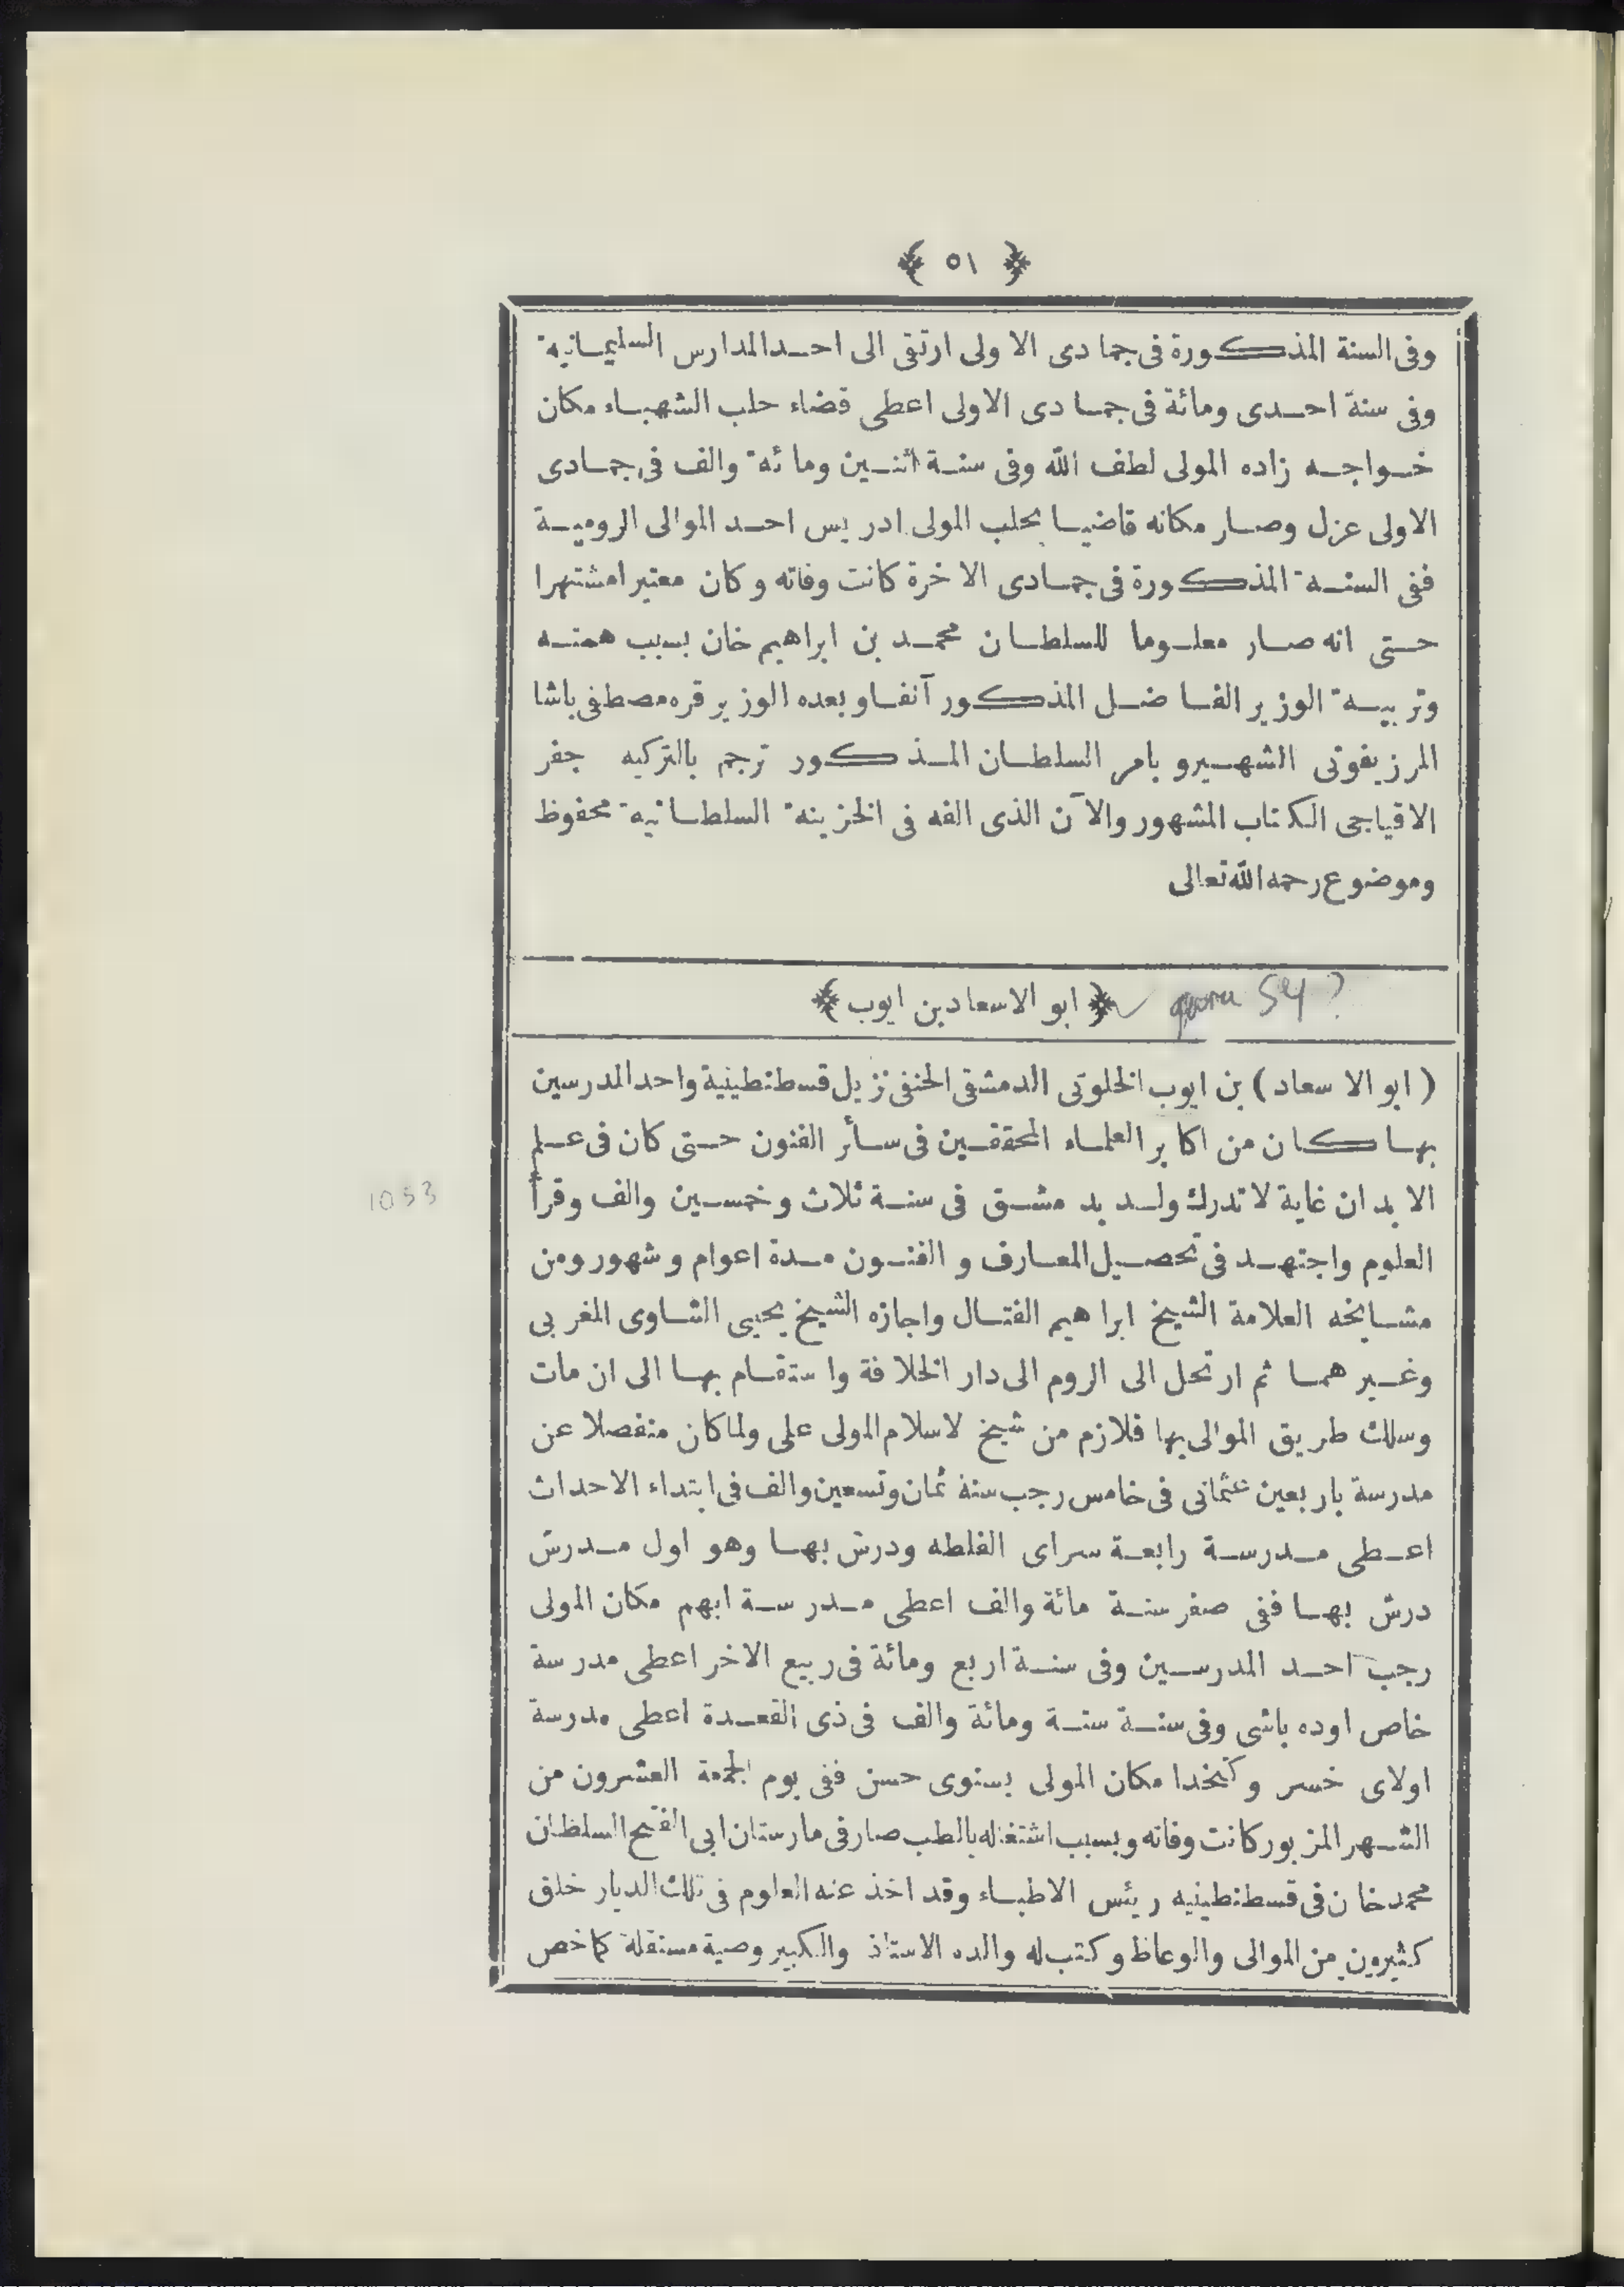 ﴿ ٥١ ﴾
وفى السنة المذكورة فى جمادى الاولى ارتقى الى احدالمدارس السليمانية
وفى سنة احدى ومائة فى جمادى الاولى اعطى قضاء حلب الشهباء مكان
خواجه زاده المولى لطف الله وفى سنة اثنين ومائة والف فى جمادى
الاولى عزل وصار مكانه قاضيا بحلب المولى ادريس احد الموالى الرومية
ففى السنة المذكورة فى جمادى الاخرة كانت وفاته وكان معتبرا مشتهرا
حتى انه صار معلوما للسلطان محمد بن ابراهيم خان بسبب همته
وتربية الوزير الفاضل المذكور آنفاوبعده الوزير قره مصطفى باشا
المرزيفونى الشهيرو بامر السلطان المذكور ترجم بالتركيه جفر
الاقياجى الكتاب المشهور والآن الذى الفه فى الخزينة السلطانية محفوظ
وموضوع رحمه الله تعالى
﴿ ابو الاسعادبن ايوب ﴾
( ابو الاسعاد ) بن ايوب الخلوتى الدمشقى الحنفى نزيل قسطنطينية واحدالمدرسين
بها كان من اكابر العلماء المحققين فى سائر الفنون حتى كان فى علم
الابدان غاية لاتدرك ولد بدمشق فى سنة ثلاث وخمسين والف وقرأ
1053
العلوم واجتهد فى تحصيل المعارف و الفنون مدة اعوام وشهور ومن
مشايخه العلامة الشيخ ابراهيم الفتال واجازه الشيخ يحيى الشاوى المغربى
وغيرهما ثم ارتحل الى الروم الى دار الخلافة واستقام بها الى ان مات
وسلك طريق الموالى بها فلازم من شيخ لاسلام المولى على ولماكان منفصلا عن
مدرسة باربعين عثمانى فى خامس رجب سنة ثمان وتسعين والف فى ابتداء الاحداث
اعطى مدرسة رابعة سراى الغلطه ودرس بها وهو اول مدرس
درس بها ففى صفر سنة مائة والف اعطى مدرسة ابهم مكان المولى
رجب احد المدرسين وفى سنة اربع ومائة فى ربيع الاخر اعطى مدرسة
خاص اوده باشى وفى سنة ستة ومائة والف فى ذى القعدة اعطى مدرسة
اولاى خسر وكتخدا مكان المولى بسنوى حسن ففى يوم الجمعة العشرون من
الشهر المزبور كانت وفاته وبسبب اشتغاله بالطب صار فى مارستان ابى الفتح السلطان
محمد خان فى قسطنطينيه رئس الاطباء وقد اخذ عنه العلوم فى تلك الديار خلق
كثيرون من الموالى والوعاظ وكتب له والده الاستاذ والكبير وصية مستقلة كما خص